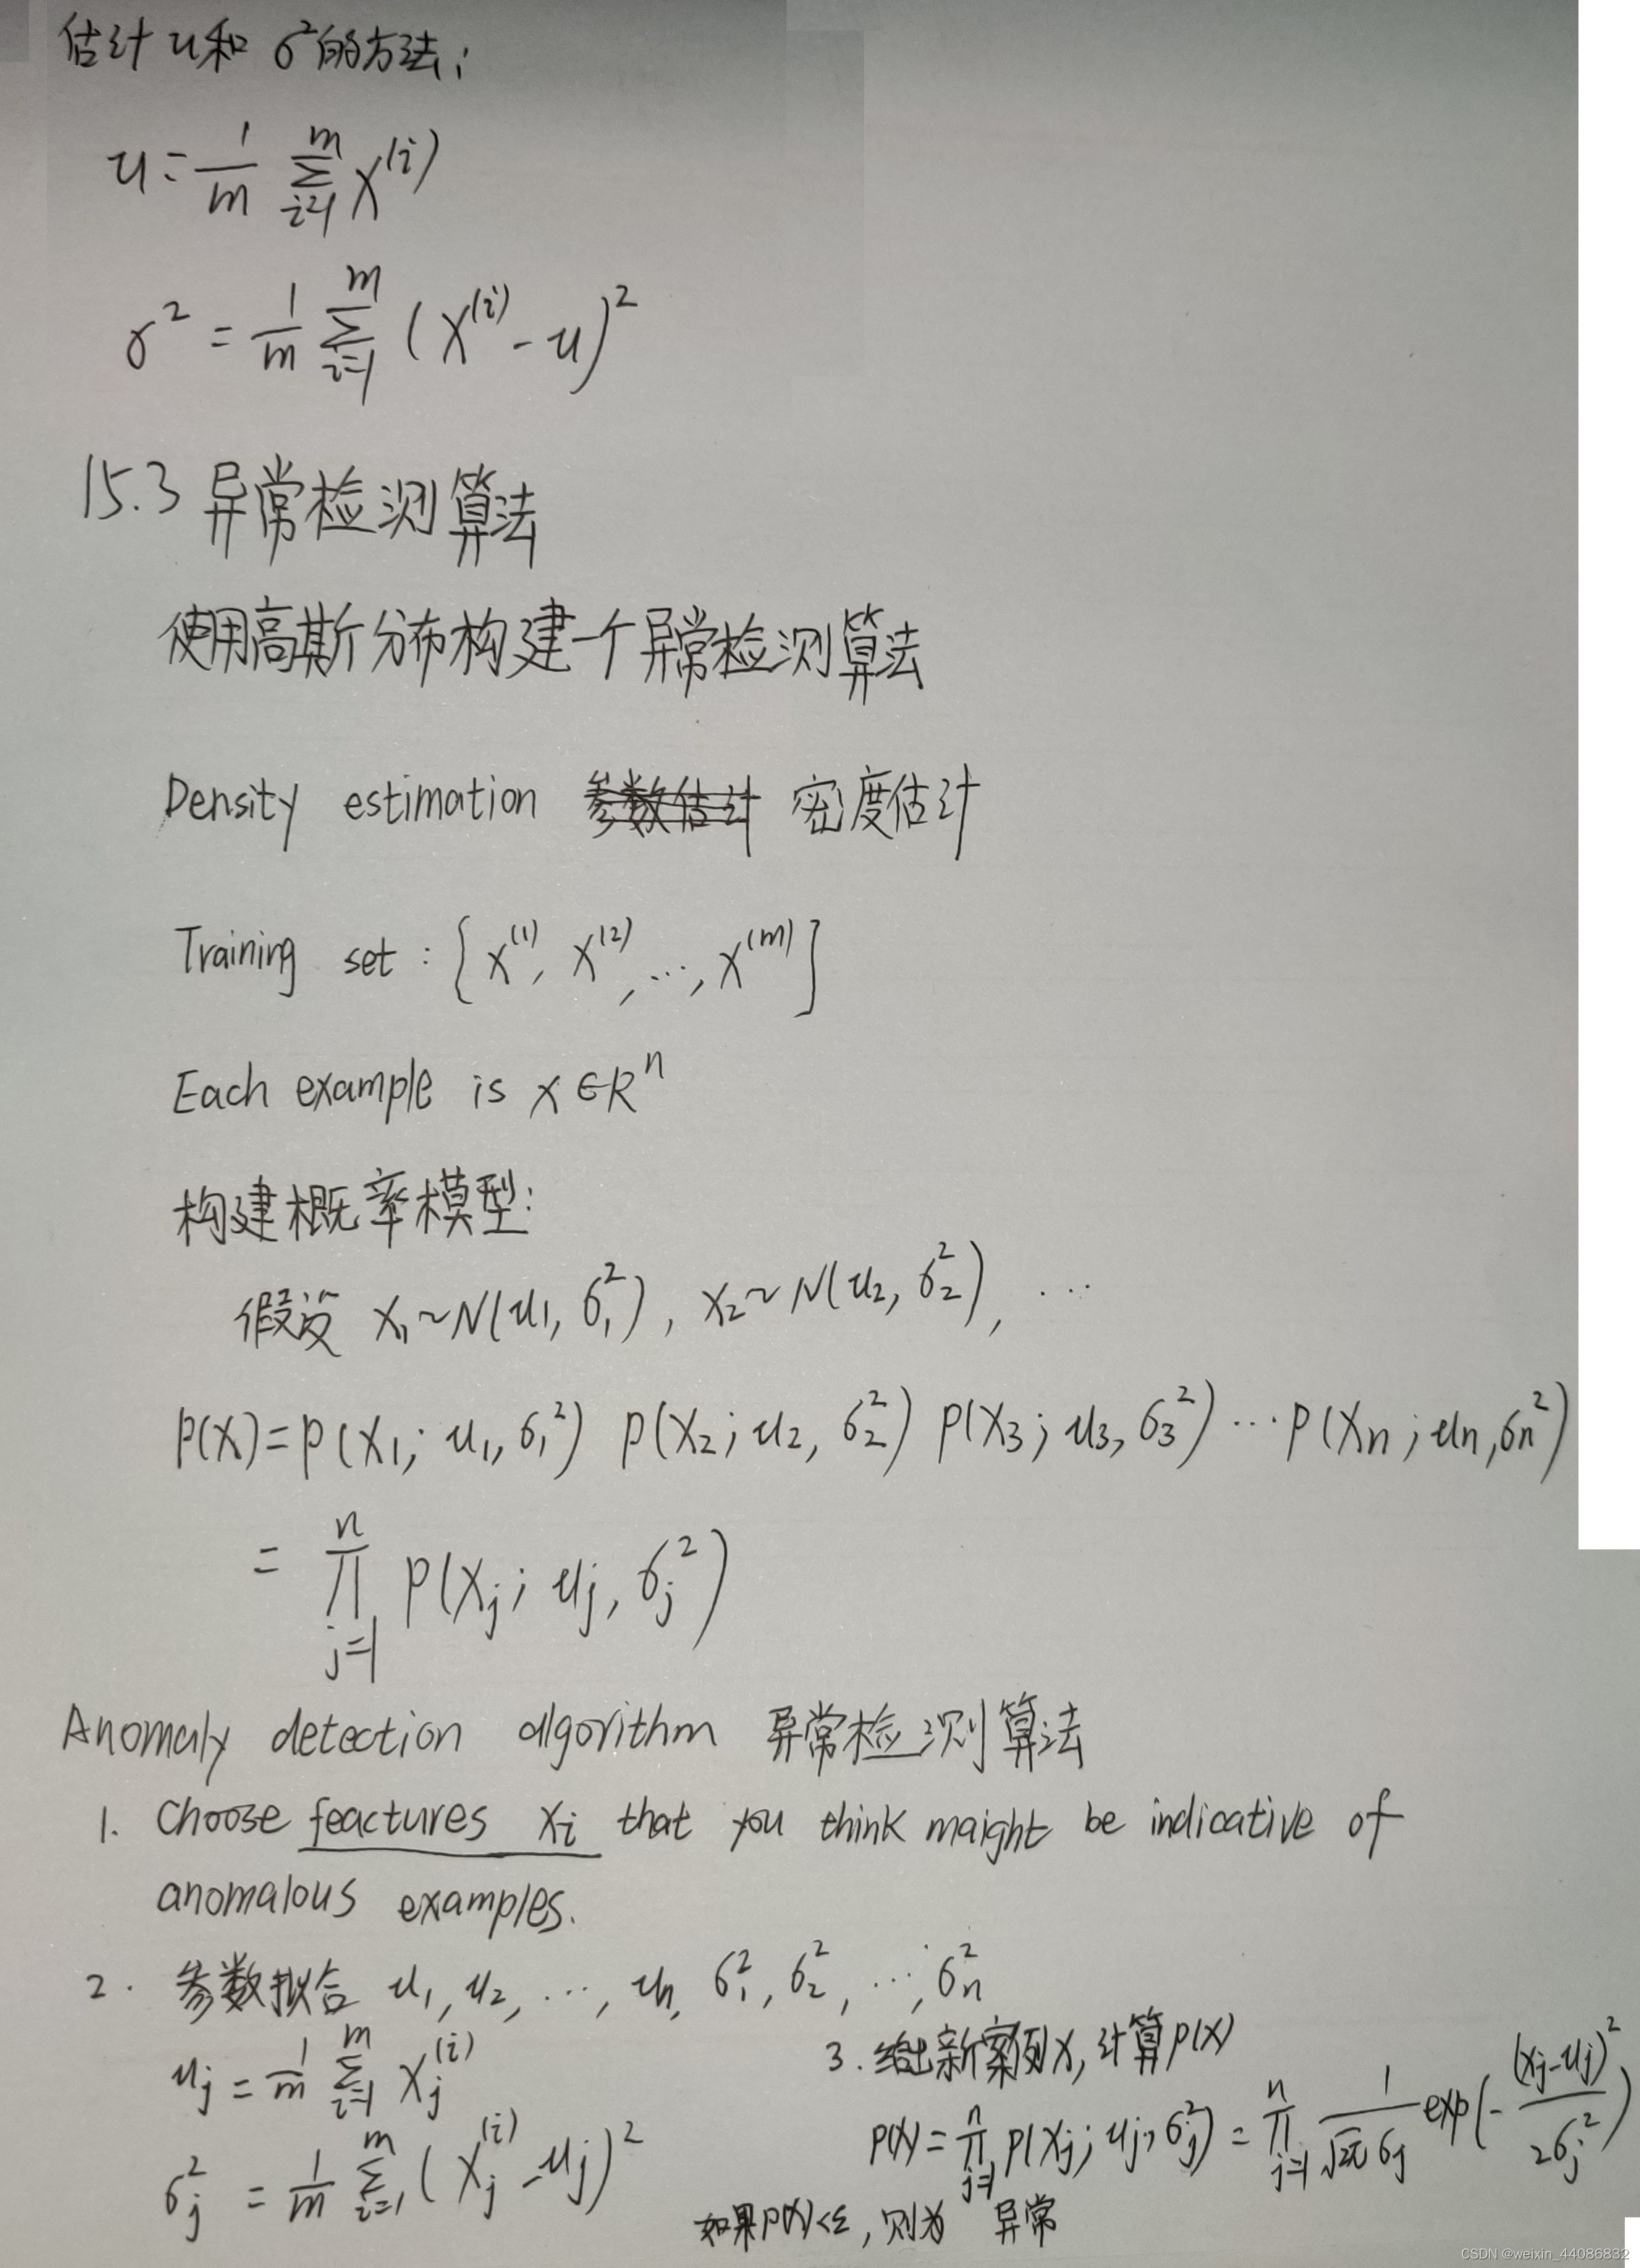 估计 u和 σ²的方法:
u = 1/m ∑_{i=1}^{m} x^{(i)}
σ² = 1/m ∑_{i=1}^{m} (x^{(i)} - u)²
15.3 异常检测算法
使用高斯分布构建一个异常检测算法
Density estimation 参数估计 密度估计
Training set : {x^{(1)}, x^{(2)}, ..., x^{(m)}]
Each example is x∈R^n
构建概率模型:
假设 x₁~N(u₁, σ₁²), x₂~N(u₂, σ₂²), ...
p(x)=p(x₁; u₁, σ₁²) p(x₂; u₂, σ₂²) p(x₃; u₃, σ₃²) ... p(x_n; u_n, σ_n²)
= ∏_{j=1}^{n} p(x_j; u_j, σ_j²)
Anomaly detection algorithm 异常检测算法
1. Choose feactures x_i that you think maight be indicative of
anomalous examples.
2. 参数拟合 u₁, u₂, ..., u_n, σ₁², σ₂², ..., σ_n²
u_j = 1/m ∑_{i=1}^{m} x_j^{(i)}
σ_j² = 1/m ∑_{i=1}^{m} (x_j^{(i)} - u_j)²
3. 给出新案例x, 计算p(x)
p(x) = ∏_{j=1}^{n} p(x_j; u_j, σ_j²) = ∏_{j=1}^{n} 1/(√2π σ_j) exp(- (x_j - u_j)²/(2σ_j²))
如果p(x)<ε, 则为 异常
CSDN @weixin_44086832